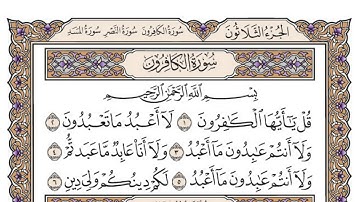 الجزء الثلاثون سورة الكافرون سورة النصر سورة المسد
سورة الكافرون
بسم الله الرحمن الرحيم
قُلْ يَٰٓأَيُّهَا ٱلْكَٰفِرُونَ ١ لَآ أَعْبُدُ مَا تَعْبُدُونَ ٢
وَلَآ أَنتُمْ عَٰبِدُونَ مَآ أَعْبُدُ ٣ وَلَآ أَنَا۠ عَابِدٌ مَّا عَبَدتُّمْ ٤
وَلَآ أَنتُمْ عَٰبِدُونَ مَآ أَعْبُدُ ٥ لَكُمْ دِينُكُمْ وَلِيَ دِينِ ٦